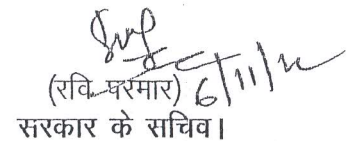 (रवि परमार) 6/11/20
सरकार के सचिव।